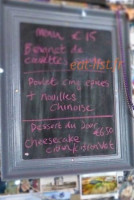 menu € 15
Beignet de
crevettes
Poulet cinq épices
+ nouilles
chinoise
Dessert du jour
€6,50
cheesecake